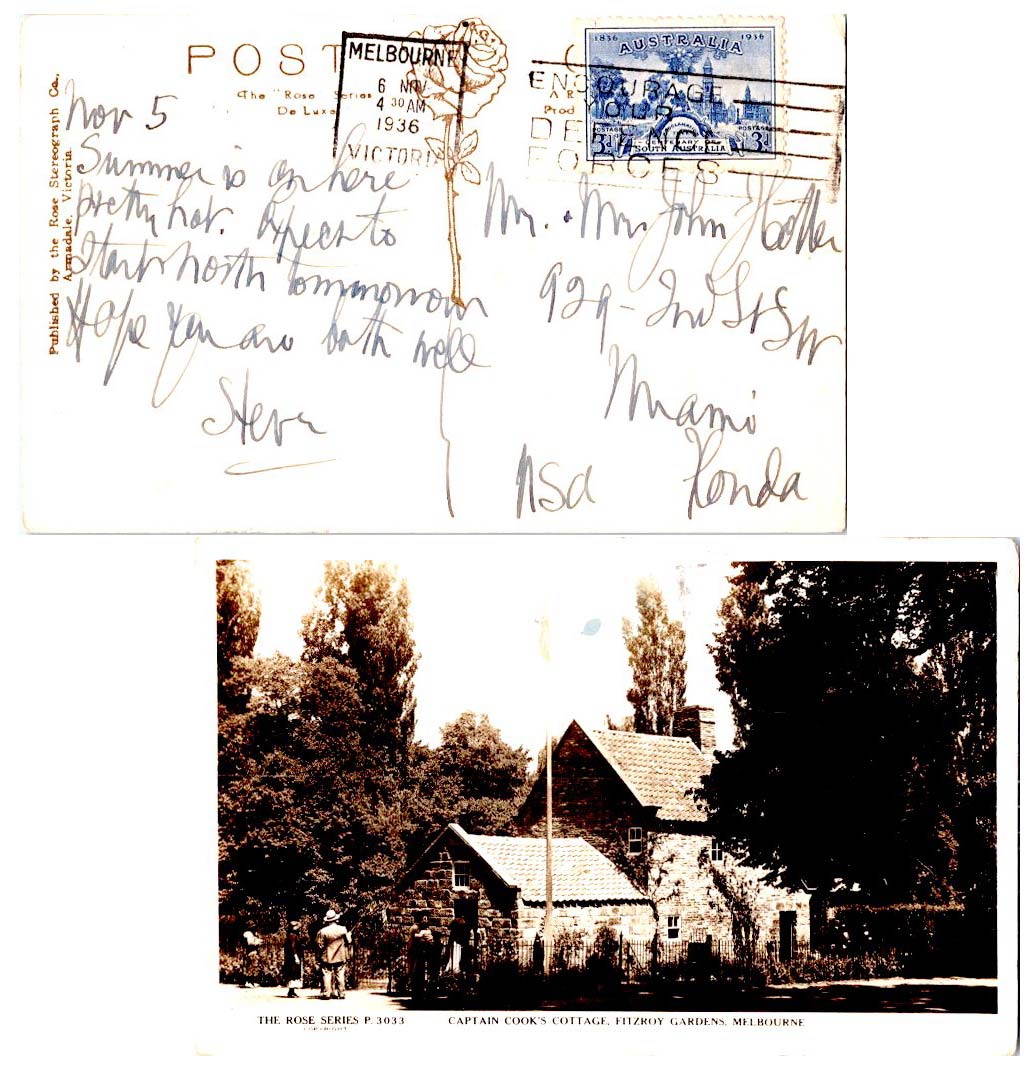 POST
The "Rose Series
De Luxe
A R
Prod
Published by the Rose Stereograph Co.,
Armadale, Victoria
MELBOURNE
6 NOV
4 30 AM
1936
VICTORIA
ENCOURAGE
YOUR
DEFENCE
FORCES
1836 1936
AUSTRALIA
POSTAGE POSTAGE
3d 3d
CENTENARY OF
SOUTH AUSTRALIA
Nov 5
Summer is on here
pretty hot. Expect to
Start North tommorrow
Hope you are both well
Steve
Mr. & Mrs John
929 - 2nd St SW
Miami
USA Florida
THE ROSE SERIES P. 3033
COPYRIGHT
CAPTAIN COOK'S COTTAGE, FITZROY GARDENS, MELBOURNE